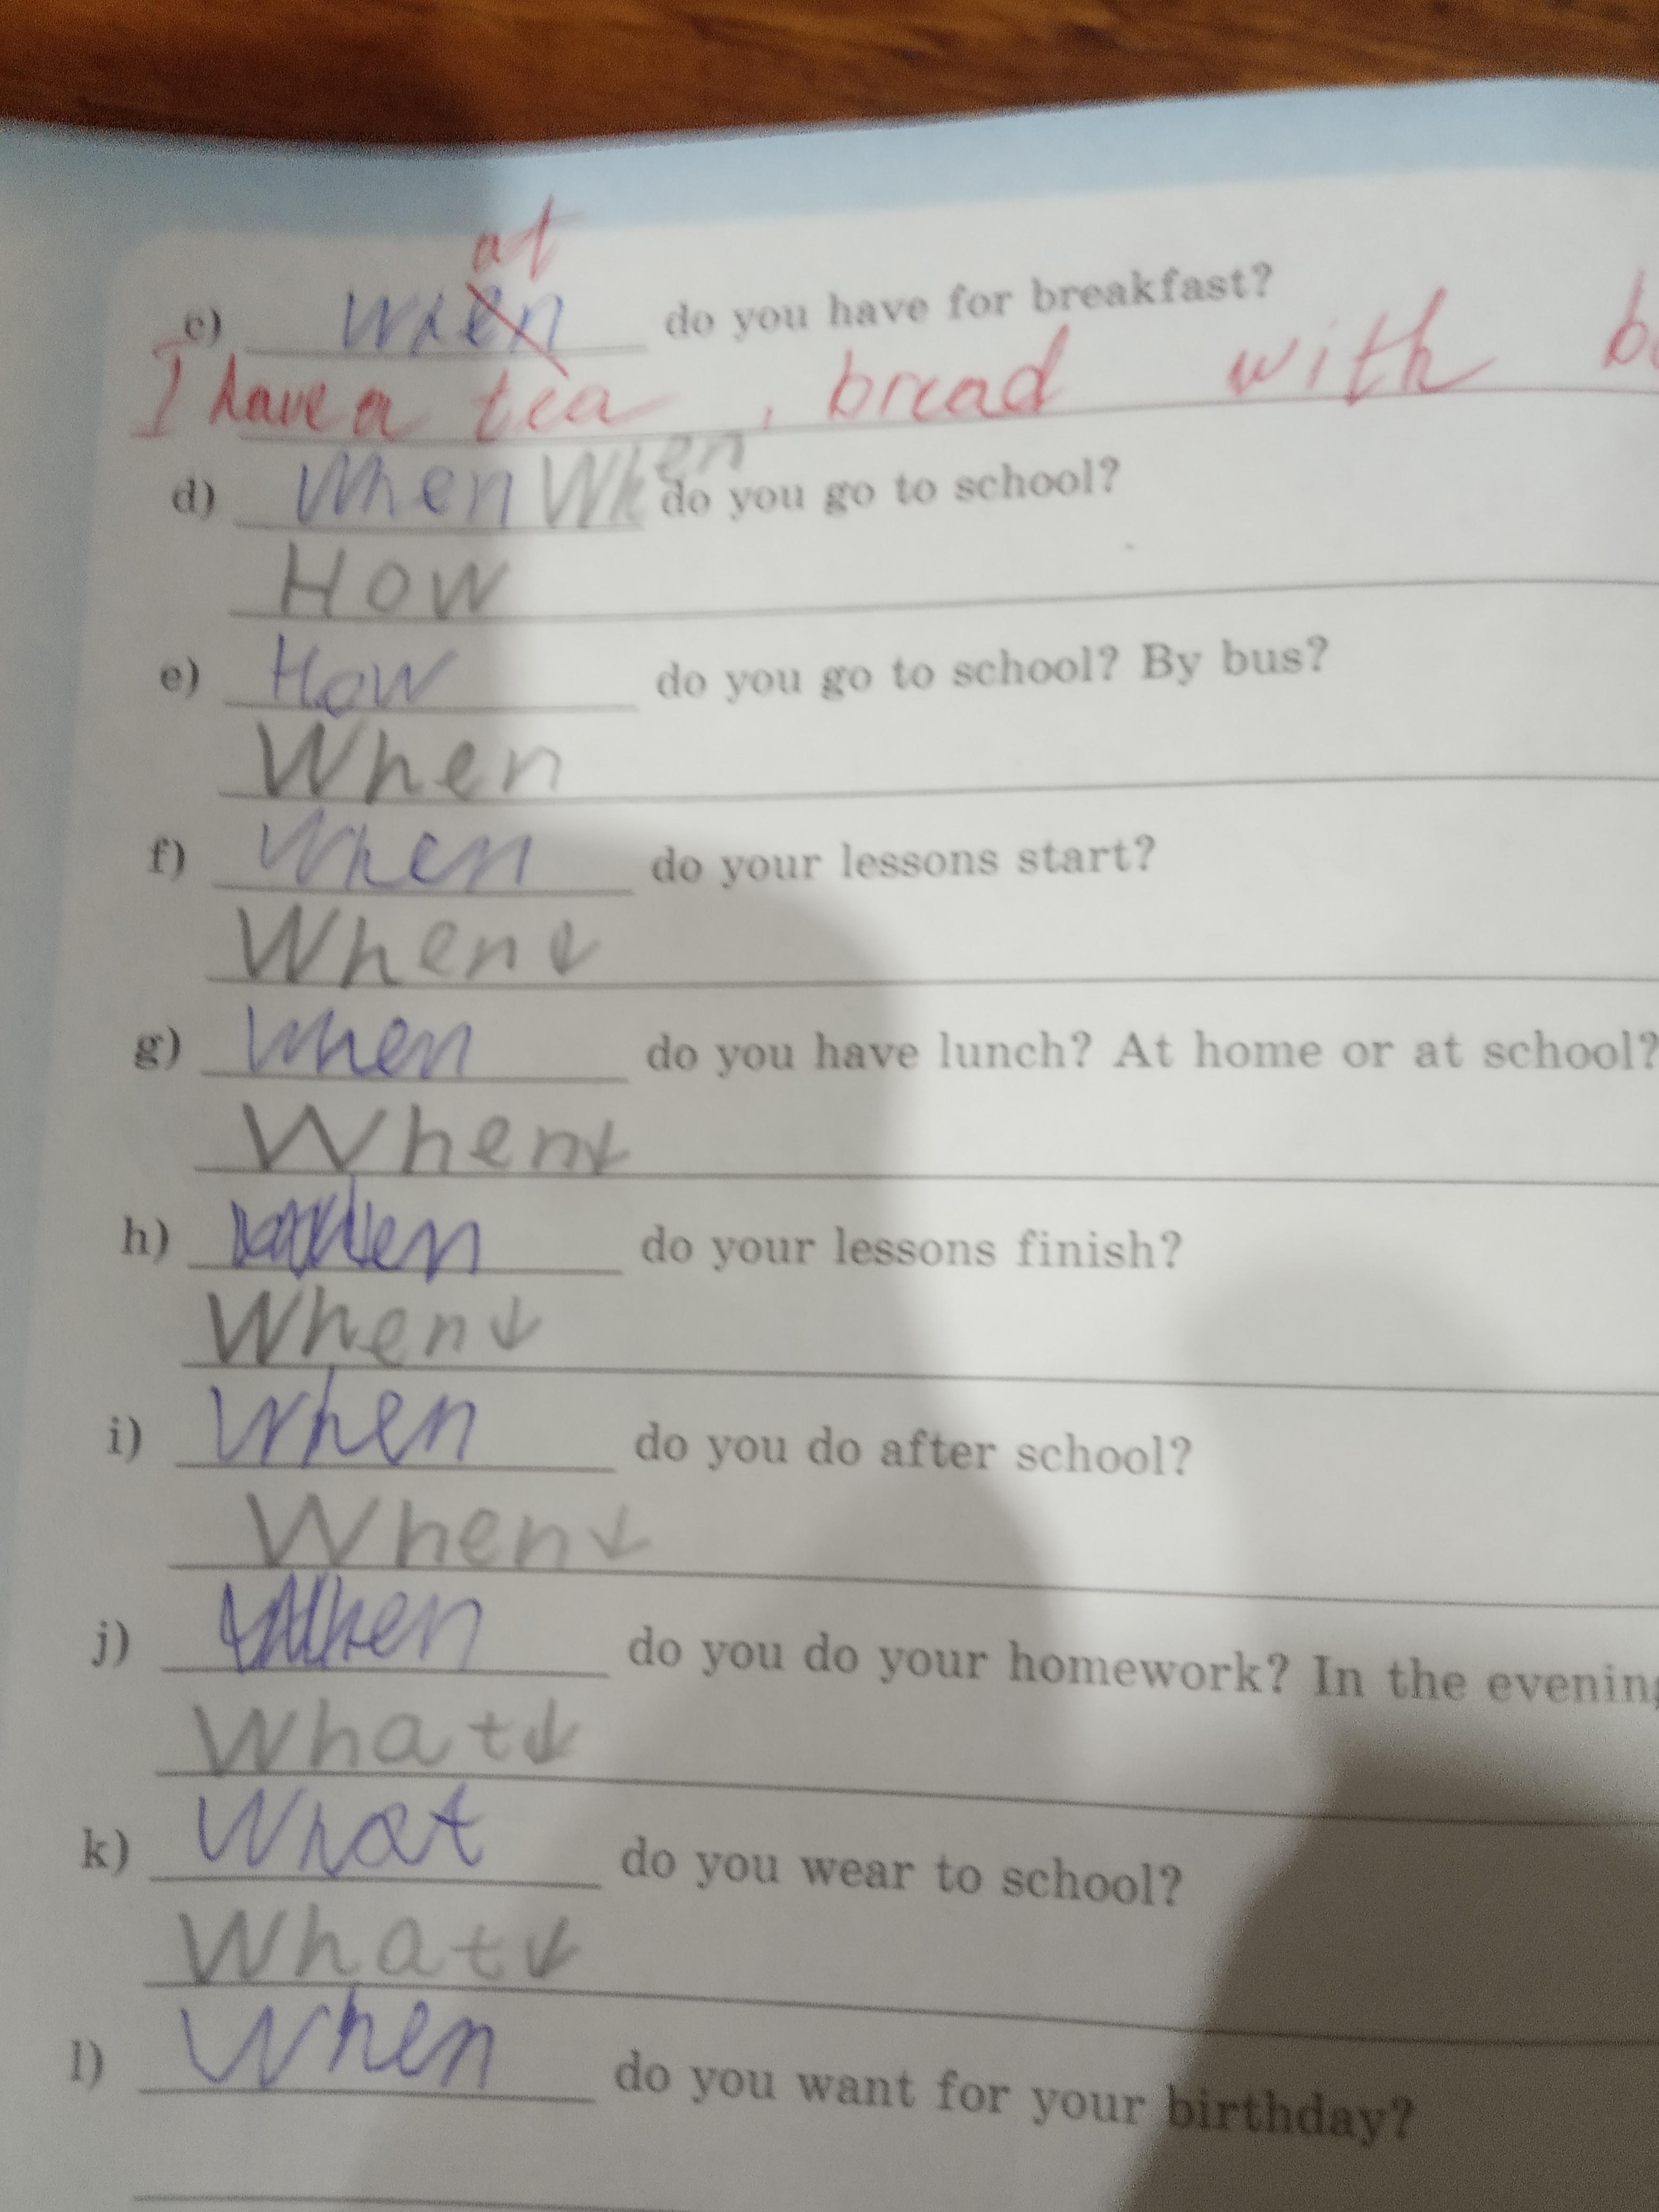 at
c) When do you have for breakfast?
I have a tea, bread with
d) When When do you go to school?
How
e) How do you go to school? By bus?
When
f) When do your lessons start?
When↓
g) When do you have lunch? At home or at school?
When↓
h) When do your lessons finish?
When↓
i) When do you do after school?
When↓
j) When do you do your homework? In the evening
What↓
k) What do you wear to school?
What↓
l) When do you want for your birthday?